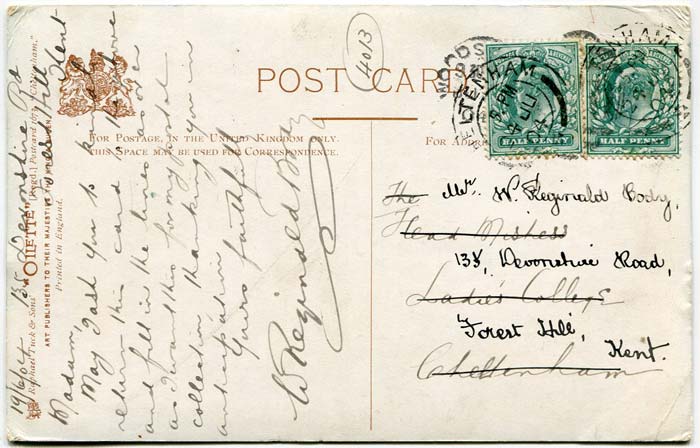 POST CARD
4013
FOR POSTAGE, IN THE UNITED KINGDOM ONLY.
THIS SPACE MAY BE USED FOR CORRESPONDENCE.
FOR ADDRE
13, Devonshire Rd
Forest Hill Kent
19/6/04
Madam,
May I ask you to kindly
return this card to above
and fill in the lines as over
as I want this for my postal
collection, thanking you in
anticipation
Yours faithfully
W Reginald Body
Raphael Tuck & Sons' "OILETTE" [Regd.] Postcard 1079, "Cheltenham."
ART PUBLISHERS TO THEIR MAJESTIES THE KING & QUEEN.
Printed in England.
HALF PENNY
HALF PENNY
The
Head Mistress
Ladies College
Cheltenham
Mr. W. Reginald Body,
13, Devonshire Road,
Forest Hill,
Kent.